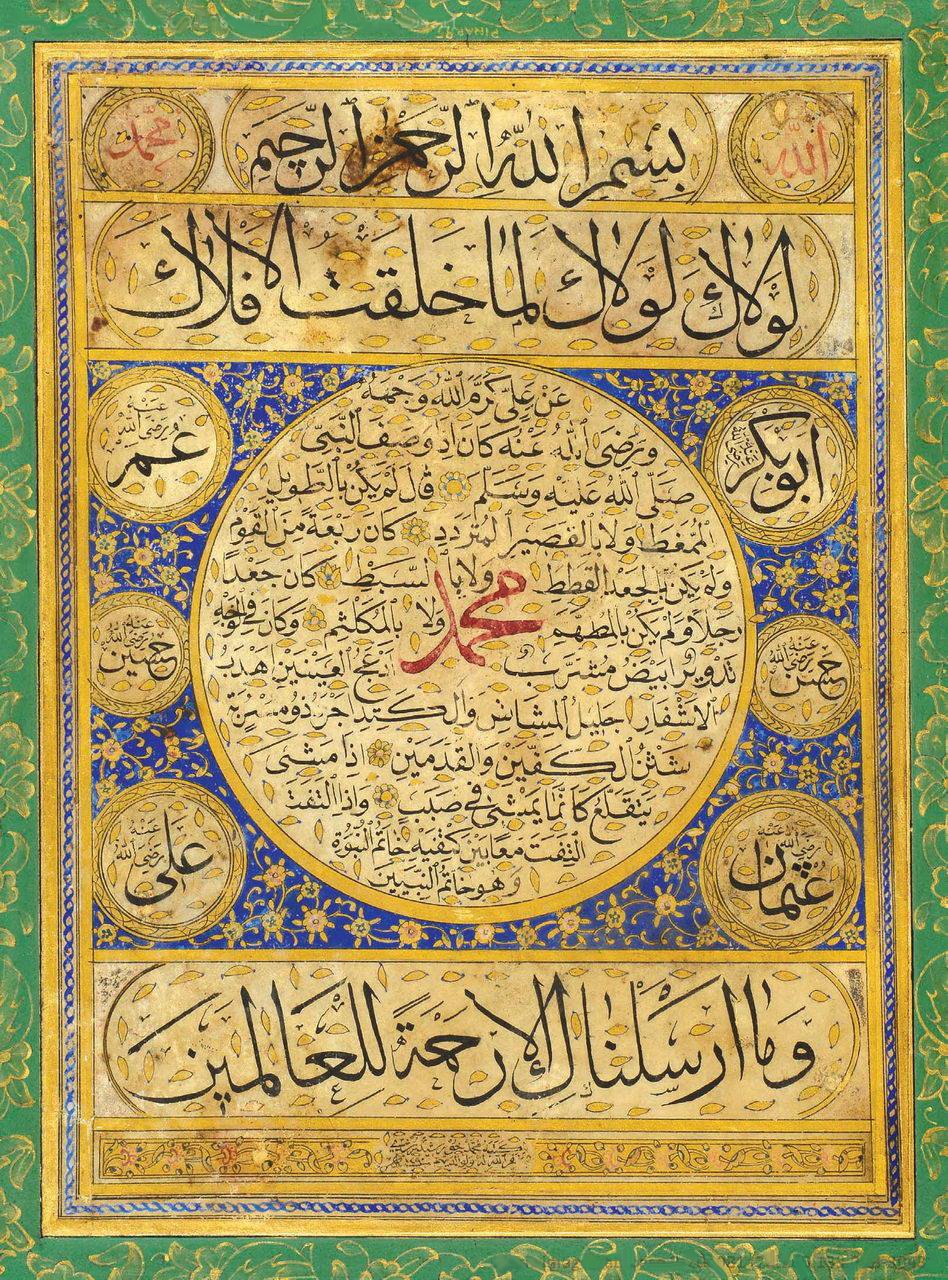 الله
بسم الله الرحمن الرحيم
محمد
لولاك لولاك لما خلقت الافلاك
ابوبكر رضى الله عنه
عمر رضى الله عنه
عن على كرم الله وجهه
ورضى الله عنه كان اذا وصف النبى
صلى الله عليه وسلم قال لم يكن بالطويل
الممغط ولا بالقصير المتردد كان ربعة من القوم
ولم يكن بالجعد القطط ولا بالسبط كان جعدا
رجلا ولم يكن بالمطهم ولا بالمكلثم وكان فى الوجه
تدوير ابيض مشرب ادعج العينين اهدب
الاشفار جليل المشاش والكتد اجرد ذو مسربة
شثن الكفين والقدمين اذا مشى
يتقلع كانما يمشى فى صبب واذا التفت
التفت معا بين كتفيه خاتم النبوة
وهو خاتم النبيين
محمد
حسن رضى الله عنه
حسين رضى الله عنه
عثمان رضى الله عنه
على رضى الله عنه
وما ارسلناك الا رحمة للعالمين